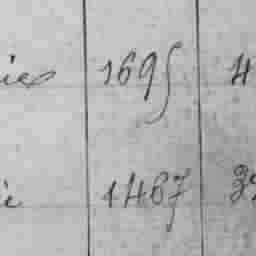 ies 1695 4
ie 1467 39